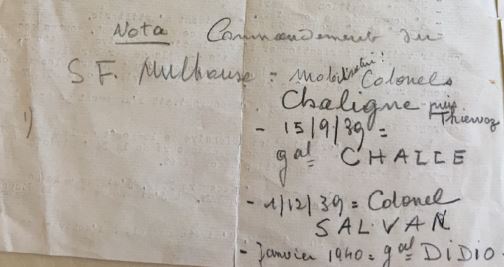 Nota Commandement du
S F. Mulhouse = mobilisation: Colonels
Chaligne puis
Thierroz
1)
- 15/9/39 =
gal CHALLE
- 1/12/39 = Colonel
SALVAN
- Janvier 1940 = gal DIDIO